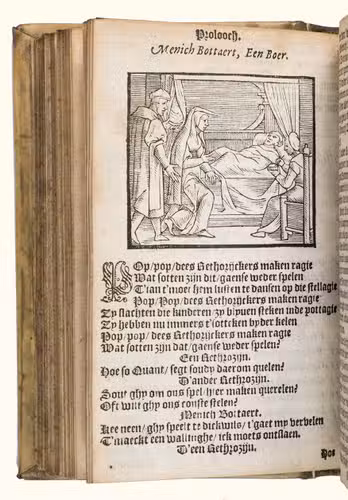 Prolooch.
Menich Bottaert, Een Boer.
POp/pop/dees Rethorijckers maken ragie
Wat sotten zijn dit/gaense weder spelen
T'ian t'moet hem lusten te dansen op die stellagie
Pop/Pop/dees Rethorijckers maken ragie
Zy slachten die kinderen/zy blyven steken inde pottagie
Zy hebben nu immers t'sottcken by der kelen
Pop/pop/dees Rethorijckers maken ragie
Wat sotten zijn dat/gaense weder spelen?
Een Rethrozijn.
Hoe so Quant/segt soudy daerom quelen?
D'ander Rethrozijn.
Sout ghy om ons spel/hier maken querelen?
Oft wilt ghy ons conste stelen?
Menich Bottaert.
Kee neen/ghy speelt te dickwils/t'gaet my vervelen
T'maeckt een wallinghe/ick moets ontslaen.
D'een Rethrozijn.
Hoe